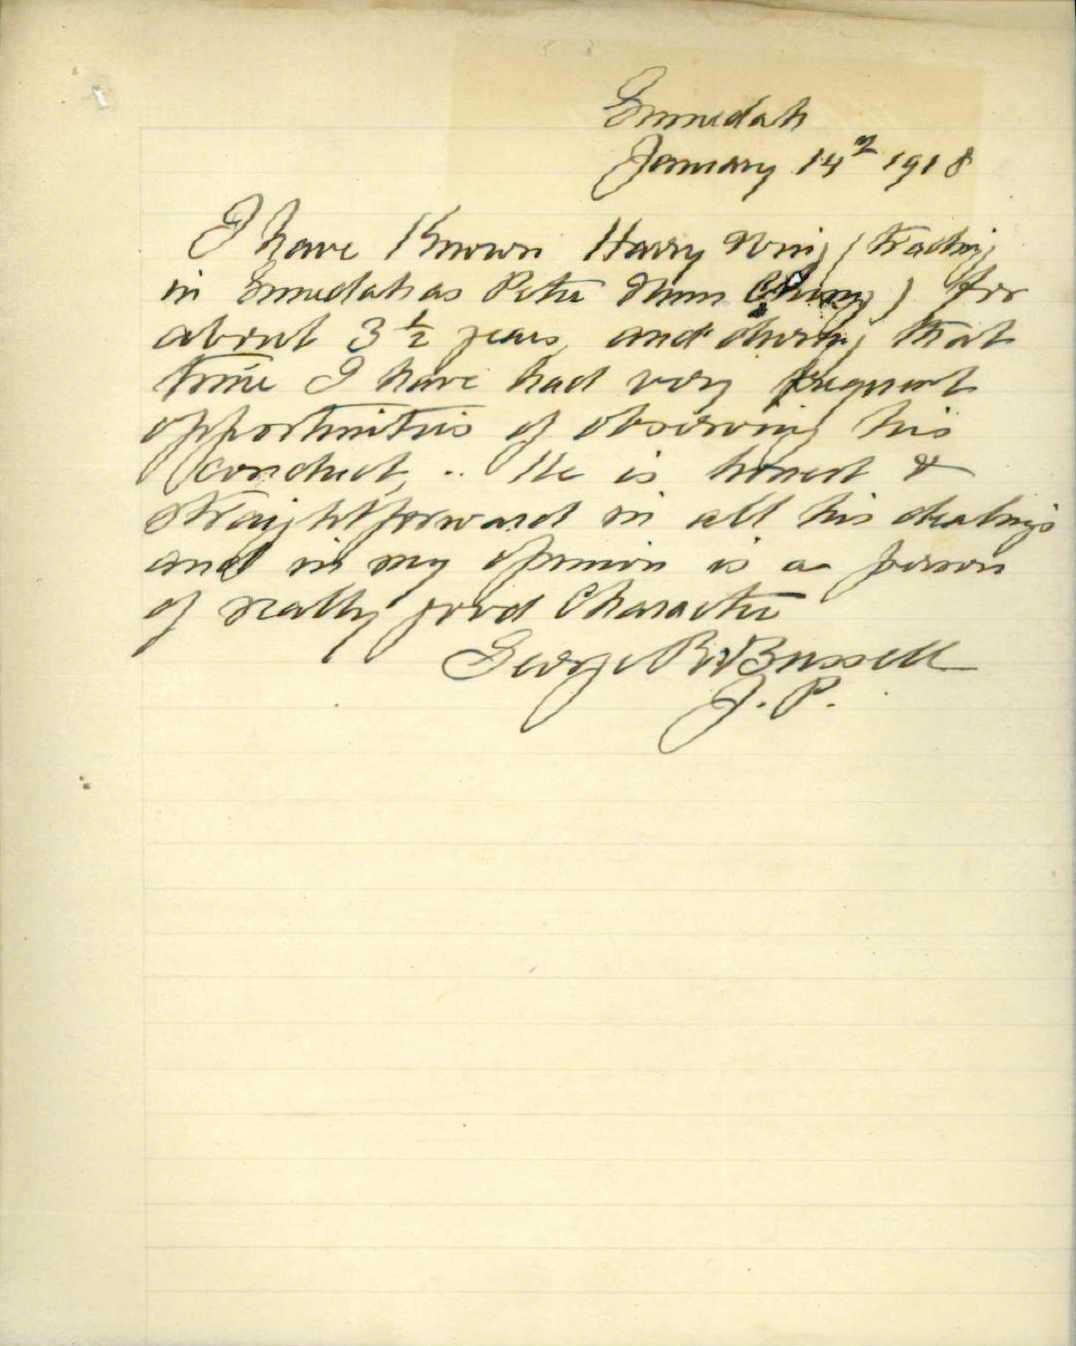 Emmedah
January 14th 1918
I have Known Harry Wing (trading
in Emmedah as Peter Mun Ching) for
about 3½ years, and during that
time I have had very frequent
opportunities of observing his
conduct, .. He is honest &
straightforward in all his dealings
and in my opinion is a person
of really good Character
George Bussell
J. P.